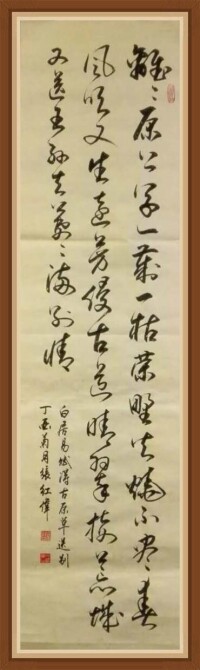 離々原上草一歲一枯榮野火燒不盡春
風吹又生遠芳侵古道晴翠接荒城
又送王孫去萋々滿別情
白居易賦得古原草送別
丁酉菊月張紅偉